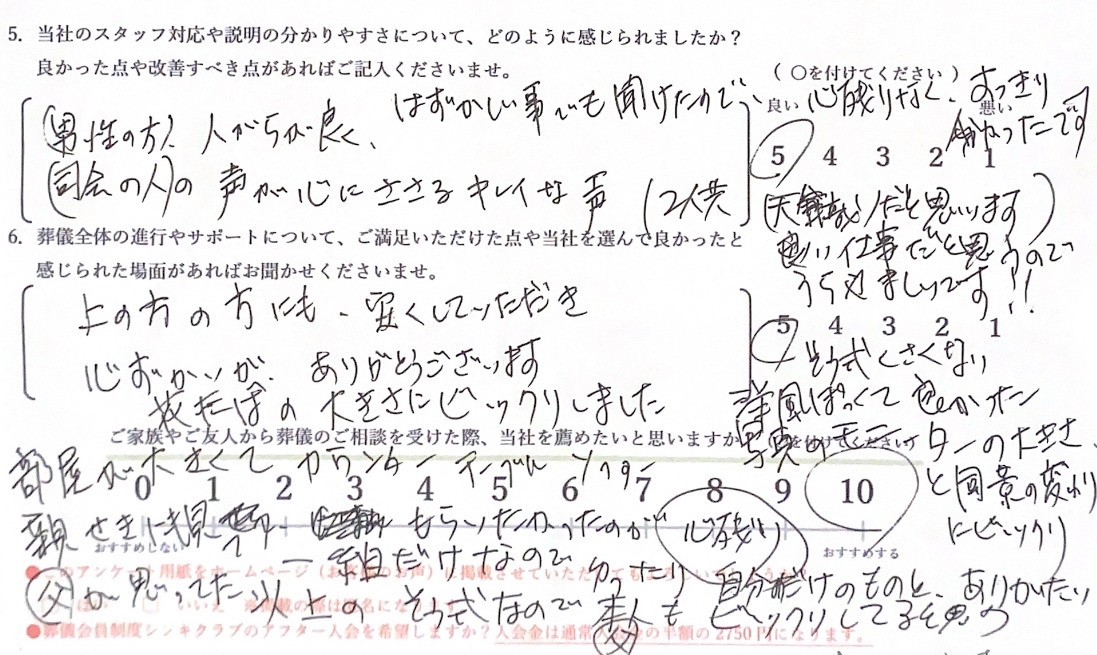 5. 当社のスタッフ対応や説明の分かりやすさについて、どのように感じられましたか?
良かった点や改善すべき点があればご記入くださいませ。
( ○を付けてください )
良い 悪い
5 4 3 2 1
はずかしい事でも聞けたので、心残りなく、すっきり
終わったです
(男性の方) 人がらが良く、
(司会の人)の 声が心にささるキレイな声 (2人共
天職だと思います)
良い仕事だと思うので
うらやましいです!!
6. 葬儀全体の進行やサポートについて、ご満足いただけた点や当社を選んで良かったと
感じられた場面があればお聞かせくださいませ。
5 4 3 2 1
上の方の方にも、安くしていただき
心ずかいが、ありがとうございます
そう式くさくない
洋風ぽっくて良かった
祭だんの大きさにビックリしました
ご家族やご友人から葬儀のご相談を受けた際、当社を薦めたいと思いますか
を付けてください
写真のモニターの大きさ、
と風景の変わり
にビックリ
部屋が大きくて カウンター テーブル ソファー
0 1 2 3 4 5 6 7 8 9 10
おすすめしない おすすめする
親せきに もらいたかったのが 心残り
一組だけなので ゆったり 自分だけのものと、ありがたい
●このアンケート用紙をホームページ(お客様のお声)に掲載させていただいて
はい いいえ ※掲載の際は匿名になります
父が思ってた以上の そう式なので 本人も ビックリしてると思う
(父)
●葬儀会員制度シンキクラブのアフター入会を希望しますか?入会金は通常入会金の半額の2750円になります。